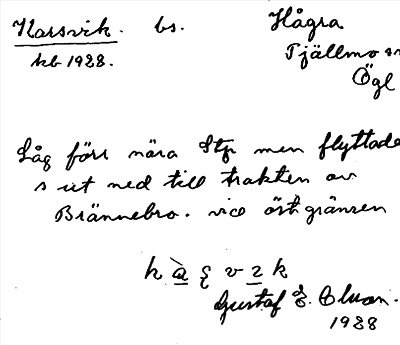 Korsvik. bs. Hågra
Tjällmo sn
kb 1928. Ögl
Låg förr nära Stp men flyttade
s ut ned till trakten av
Brännebro. vid östgränsen
k v z k
Gustaf E.
1928